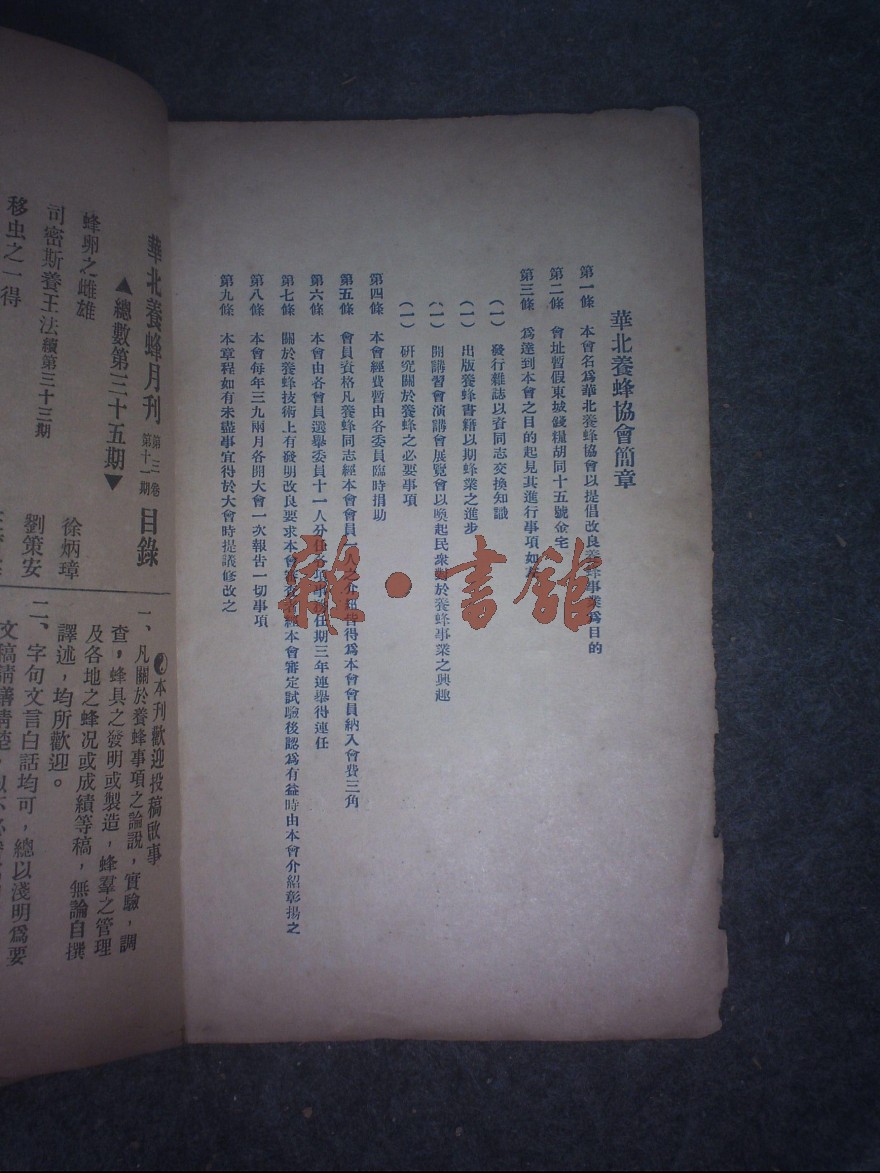 華北養蜂協會簡章
第一條 本會名爲華北養蜂協會以提倡改良養蜂事業爲目的
第二條 會址暫假東城錢糧胡同十五號余宅
第三條 爲達到本會之目的起見其進行事項如
(一) 發行雜誌以資同志交換知識
(一) 出版養蜂書籍以期蜂業之進步
(一) 開講習會演講會展覽會以喚起民衆對於養蜂事業之興趣
(一) 研究關於養蜂之必要事項
第四條 本會經費暫由各委員臨時捐助
第五條 會員資格凡養蜂同志經本會會員一人之介紹皆得爲本會會員納入會費三角
第六條 本會由各會員選舉委員十一人分任各項事 任期三年連舉得連任
第七條 關於養蜂技術上有發明改良要求本會 經本會審定試驗後認爲有益時由本會介紹彰揚之
第八條 本會每年三九兩月各開大會一次報告一切事項
第九條 本章程如有未盡事宜得於大會時提議修改之
雜·書館
華北養蜂月刊 第三卷 第十一期 目錄
▲總數第三十五期▼
蜂卵之雌雄 徐炳璋
司密斯養王法續第三十三期 劉策安
移虫之一得
本刊歡迎投稿啟事
一、凡關於養蜂事項之論說,實驗,調
查,蜂具之發明或製造,蜂羣之管理
及各地之蜂況或成績等稿,無論自撰
譯述,均所歡迎。
二、字句文言白話均可,總以淺明爲要
文稿請繕清楚